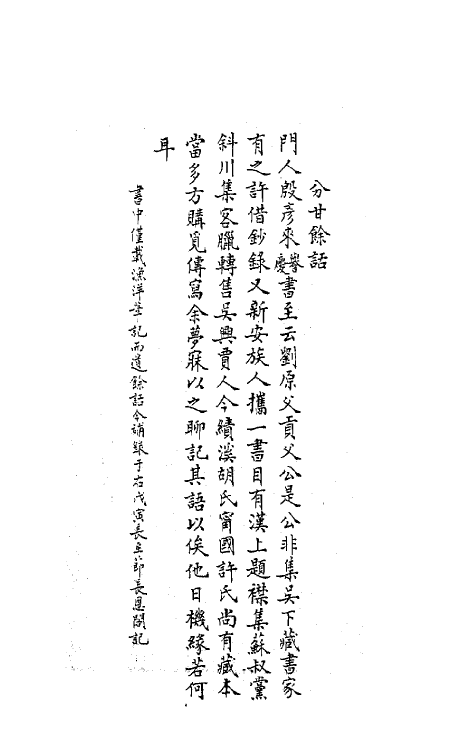 分甘餘話
門人殷彥來譽慶書至云劉原父貢父公是公非集吳下藏書家
有之許借鈔錄又新安族人攜一書目有漢上題襟集蘇叔黨
斜川集客臘轉售吳興賈人今績溪胡氏甯國許氏尚有藏本
當多方購覓傳寫余夢寐以之聊記其語以俟他日機緣若何
耳
書中僅載漁洋筆記而遺餘話今補錄于右戊寅長至節長恩閣記